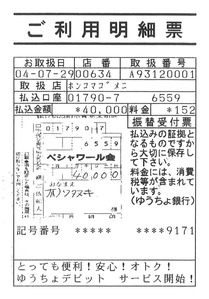 ご利用明細票
お取扱日 店番 取扱番号
04-07-29 00634 A93120001
取扱店 ホンコマゴメニ
払込口座 01790-7 6559
払込金額 *40,000 料金 *152
振替受付票
払込みの証拠と
なるものですか
ら大切に保存し
て下さい。
料金には、消費
税等が含まれて
います。
(ゆうちょ銀行)
01790 7
6559
ペシャワール会
40000
記号番号 ***** ****9171
とっても便利!安心!オトク!
ゆうちょデビット サービス開始!